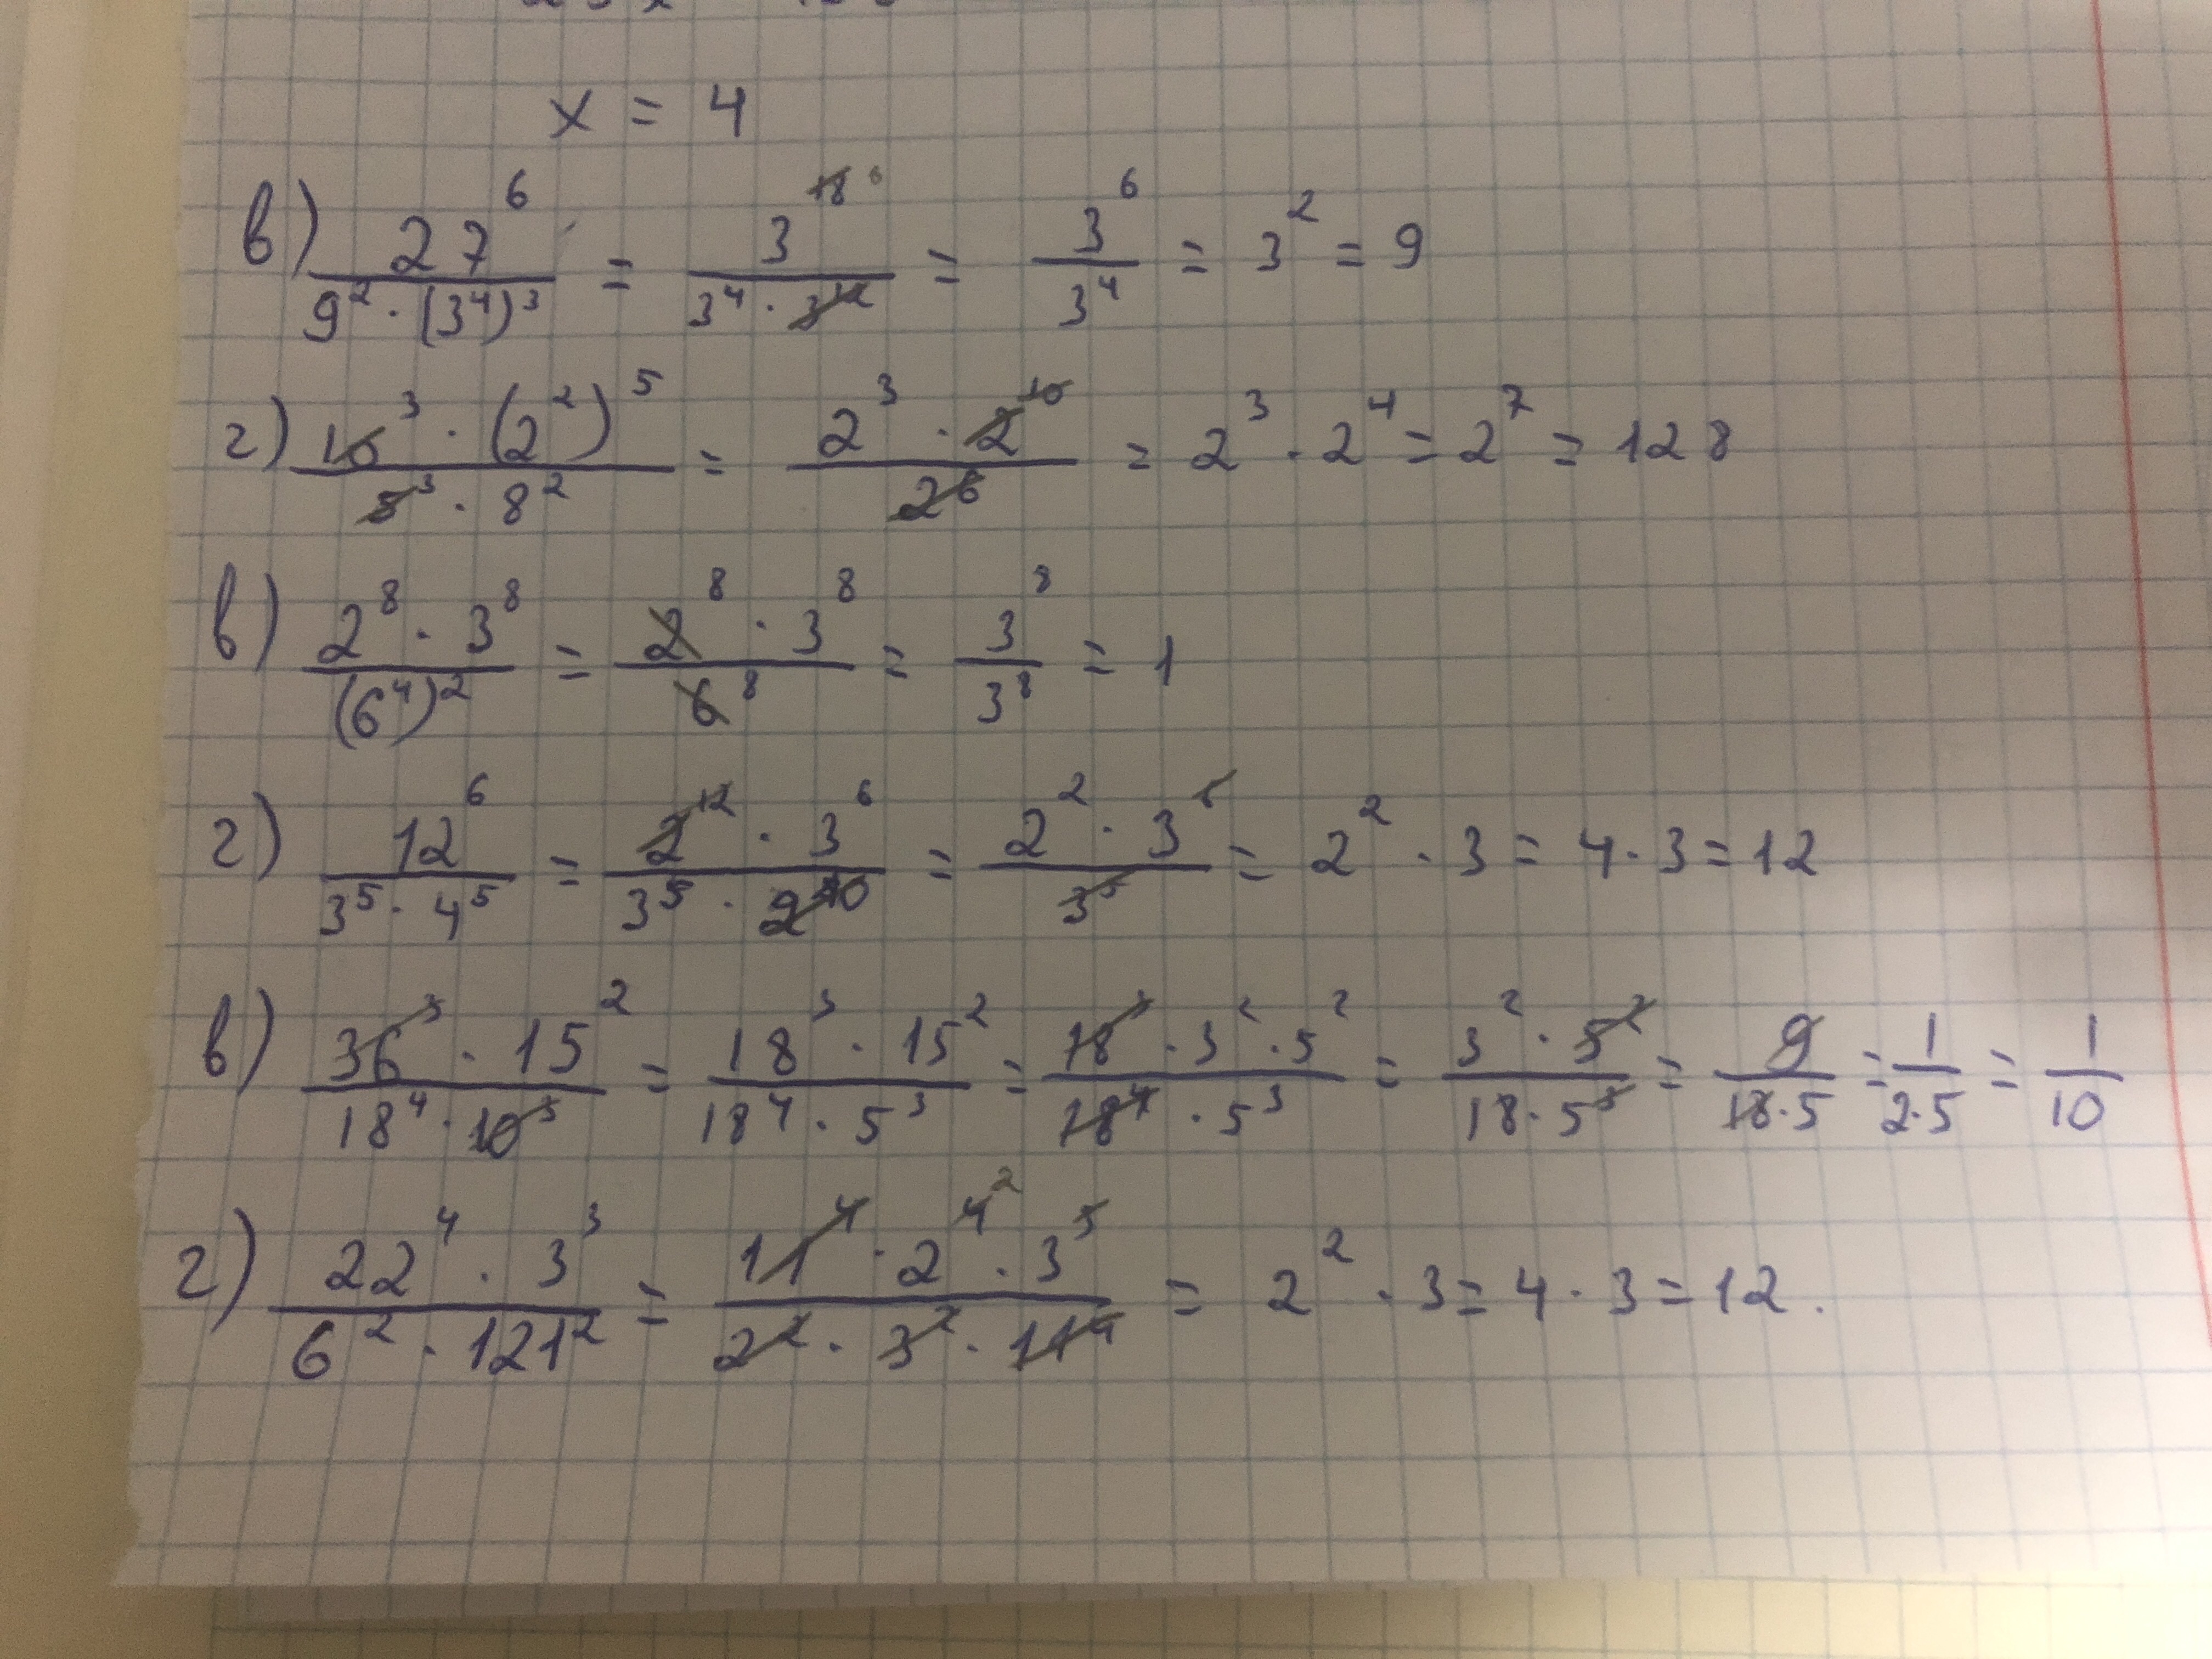 x = 4
в) 27^6 / (9^2 · (3^4)^3) = 3^18 6 / (3^4 · 3^12) = 3^6 / 3^4 = 3^2 = 9
г) 10^3 · (2^2)^5 / (5^3 · 8^2) = 2^3 · 2^10 / 2^6 = 2^3 · 2^4 = 2^7 = 128
в) 2^8 · 3^8 / (6^4)^2 = 2^8 · 3^8 / 6^8 = 3^8 / 3^8 = 1
г) 12^6 / (3^5 · 4^5) = 2^12 · 3^6 / (3^5 · 2^10) = 2^2 · 3^6 / 3^5 = 2^2 · 3 = 4 · 3 = 12
в) 36^3 · 15^2 / (18^4 · 10^3) = 18^3 · 15^2 / (18^4 · 5^3) = 18^3 · 3^2 · 5^2 / (18^4 · 5^3) = 3^2 · 5^2 / (18 · 5^3) = 9 / (18 · 5) = 1 / (2 · 5) = 1 / 10
г) 22^4 · 3^3 / (6^2 · 121^2) = 11^4 · 2^4 2 · 3^3 / (2^2 · 3^2 · 11^4) = 2^2 · 3 = 4 · 3 = 12.